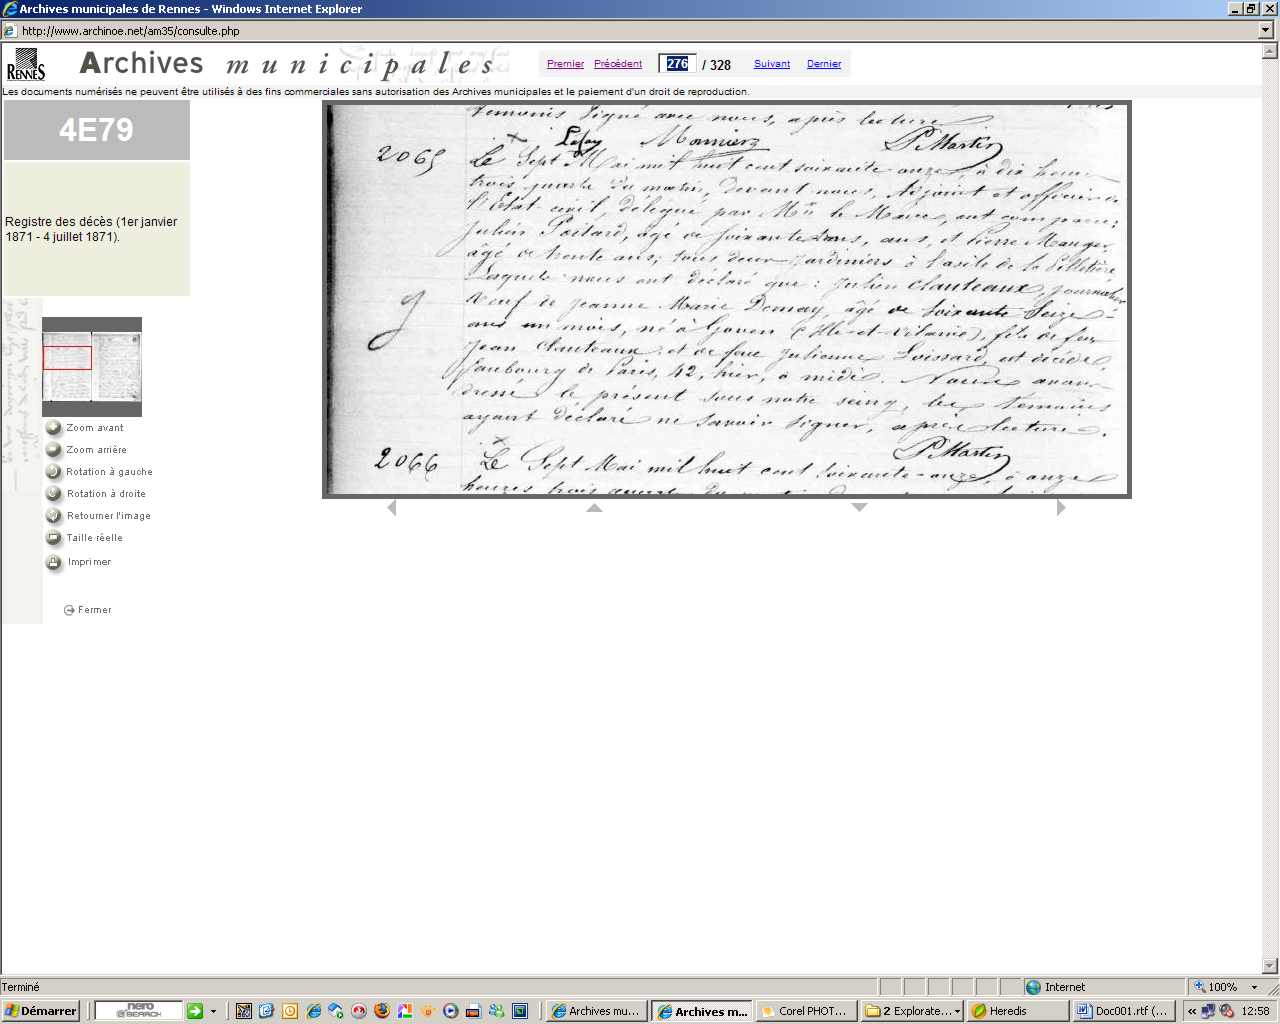 Archives municipales de Rennes - Windows Internet Explorer
http://www.archinoe.net/am35/consulte.php
RENNES
Archives municipales
Premier Précédent 276 / 328 Suivant Dernier
Les documents numérisés ne peuvent être utilisés à des fins commerciales sans autorisation des Archives municipales et le paiement d'un droit de reproduction.
4E79
Registre des décès (1er janvier
1871 - 4 juillet 1871).
Zoom avant
Zoom arrière
Rotation à gauche
Rotation à droite
Retourner l'image
Taille réelle
Imprimer
Fermer
témoins signé avec nous, après lecture
Monnier P. Martin
2065
Le Sept Mai mil huit cent soixante onze, à dix heures
trois quarts du matin, devant nous, Adjoint et officier de
l'Etat-civil, délégué par Mr le Maire, ont comparu:
Julien Poitard, âgé de soixante ans, et Pierre Mauger,
âgé de trente ans; tous deux jardiniers à l'asile de la Pilletière
Lesquels nous ont déclaré que: Julien Clauteaux, journalier
Veuf de Jeanne Marie Demay, âgé de soixante Seize
ans un mois, né à Goven (Ille-et-Vilaine), fils de feu
Jean Clauteaux, et de feue Julienne Loissard, est décédé,
faubourg de Paris, 42, hier, à midi. Nous avons
dressé le présent sous notre seing, les témoins
ayant déclaré ne savoir signer, après lecture.
P. Martin
2066
Le Sept Mai mil huit cent soixante-onze, à onze
heures trois quarts du
Terminé
Internet
100%
Démarrer
nero
SEARCH
Archives mu...
Archives m...
Corel PHOT...
2 Explorate...
Heredis
Doc001.rtf (...
12:58